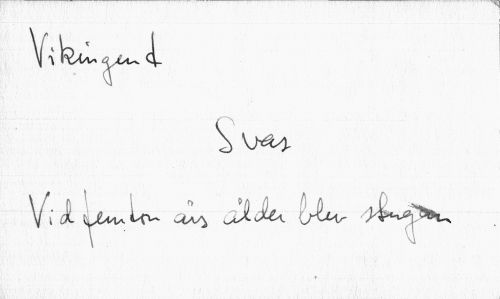 Vikingen d
Svar
Vid femton års ålder blev stugan